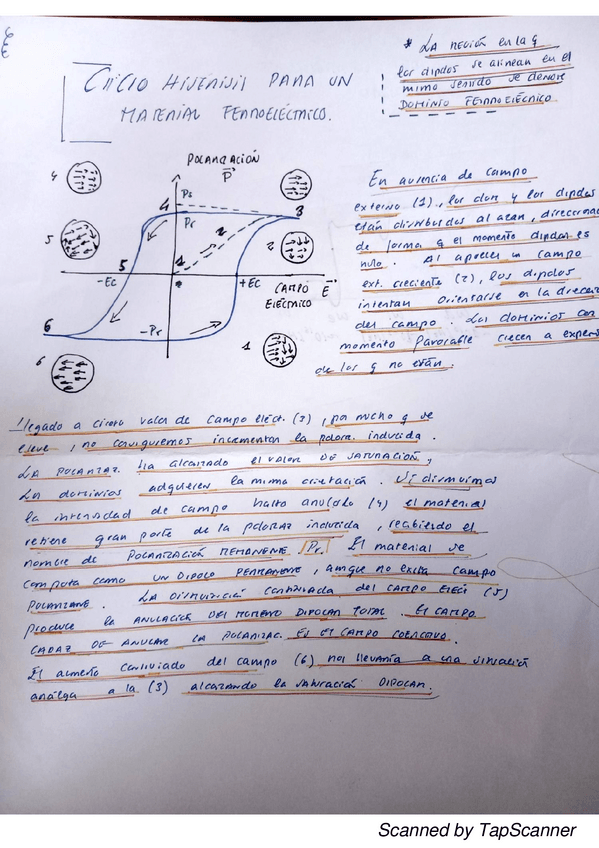 CICLO HISTERISIS PARA UN
MATERIAL FERROELÉCTRICO.
* LA REGIÓN en la q
los dipolos se alinean en el
mismo sentido se denom
DOMINIO FERROELÉCTRICO
POLARIZACIÓN
P
4
4
Ps
Pr
3
5
2
1
2
5
-Ec
+Ec
CAMPO E
ELÉCTRICO
6
-Pr
6
1
En ausencia de campo
externo (1), los dom y los dipolos
están distribuidos al azar, direcciona
de forma q el momento dipolar es
nulo. Al aparecer un campo
ext. creciente (2), los dipolos
intentan orientarse en la direcció
del campo Los dominios con
momento favorable crecen a expen
de los q no están.
llegado a cierto valor de campo eléct. (3), por mucho q se
eleve, no conseguiremos incrementar la polariz. inducida.
LA POLARIZAZ. ha alcanzado el valor DE SATURACIÓN y
los dominios adquieren la misma orientación. Si disminuimos
la intensidad de campo hasta anularlo (4) el material
retiene gran parte de la polarizaz inducida, recibiendo el
nombre de POLARIZACIÓN REMANENTE |Pr.| El material se
comporta como UN DIPOLO PERMANENTE, aunque no exista campo
POLARIZANTE. LA DISMINUCIÓN continuada del CAMPO ELECT (5)
produce la ANULACIÓN DEL MOMENTO DIPOLAR TOTAL. El CAMPO
CAPAZ DE ANULAR LA POLARIZAC. ES EL CAMPO COERCITIVO.
El aumento continuado del campo (6) nos llevaría a una situación
análoga a la (3) alcanzando la saturación DIPOLAR.
Scanned by TapScanner